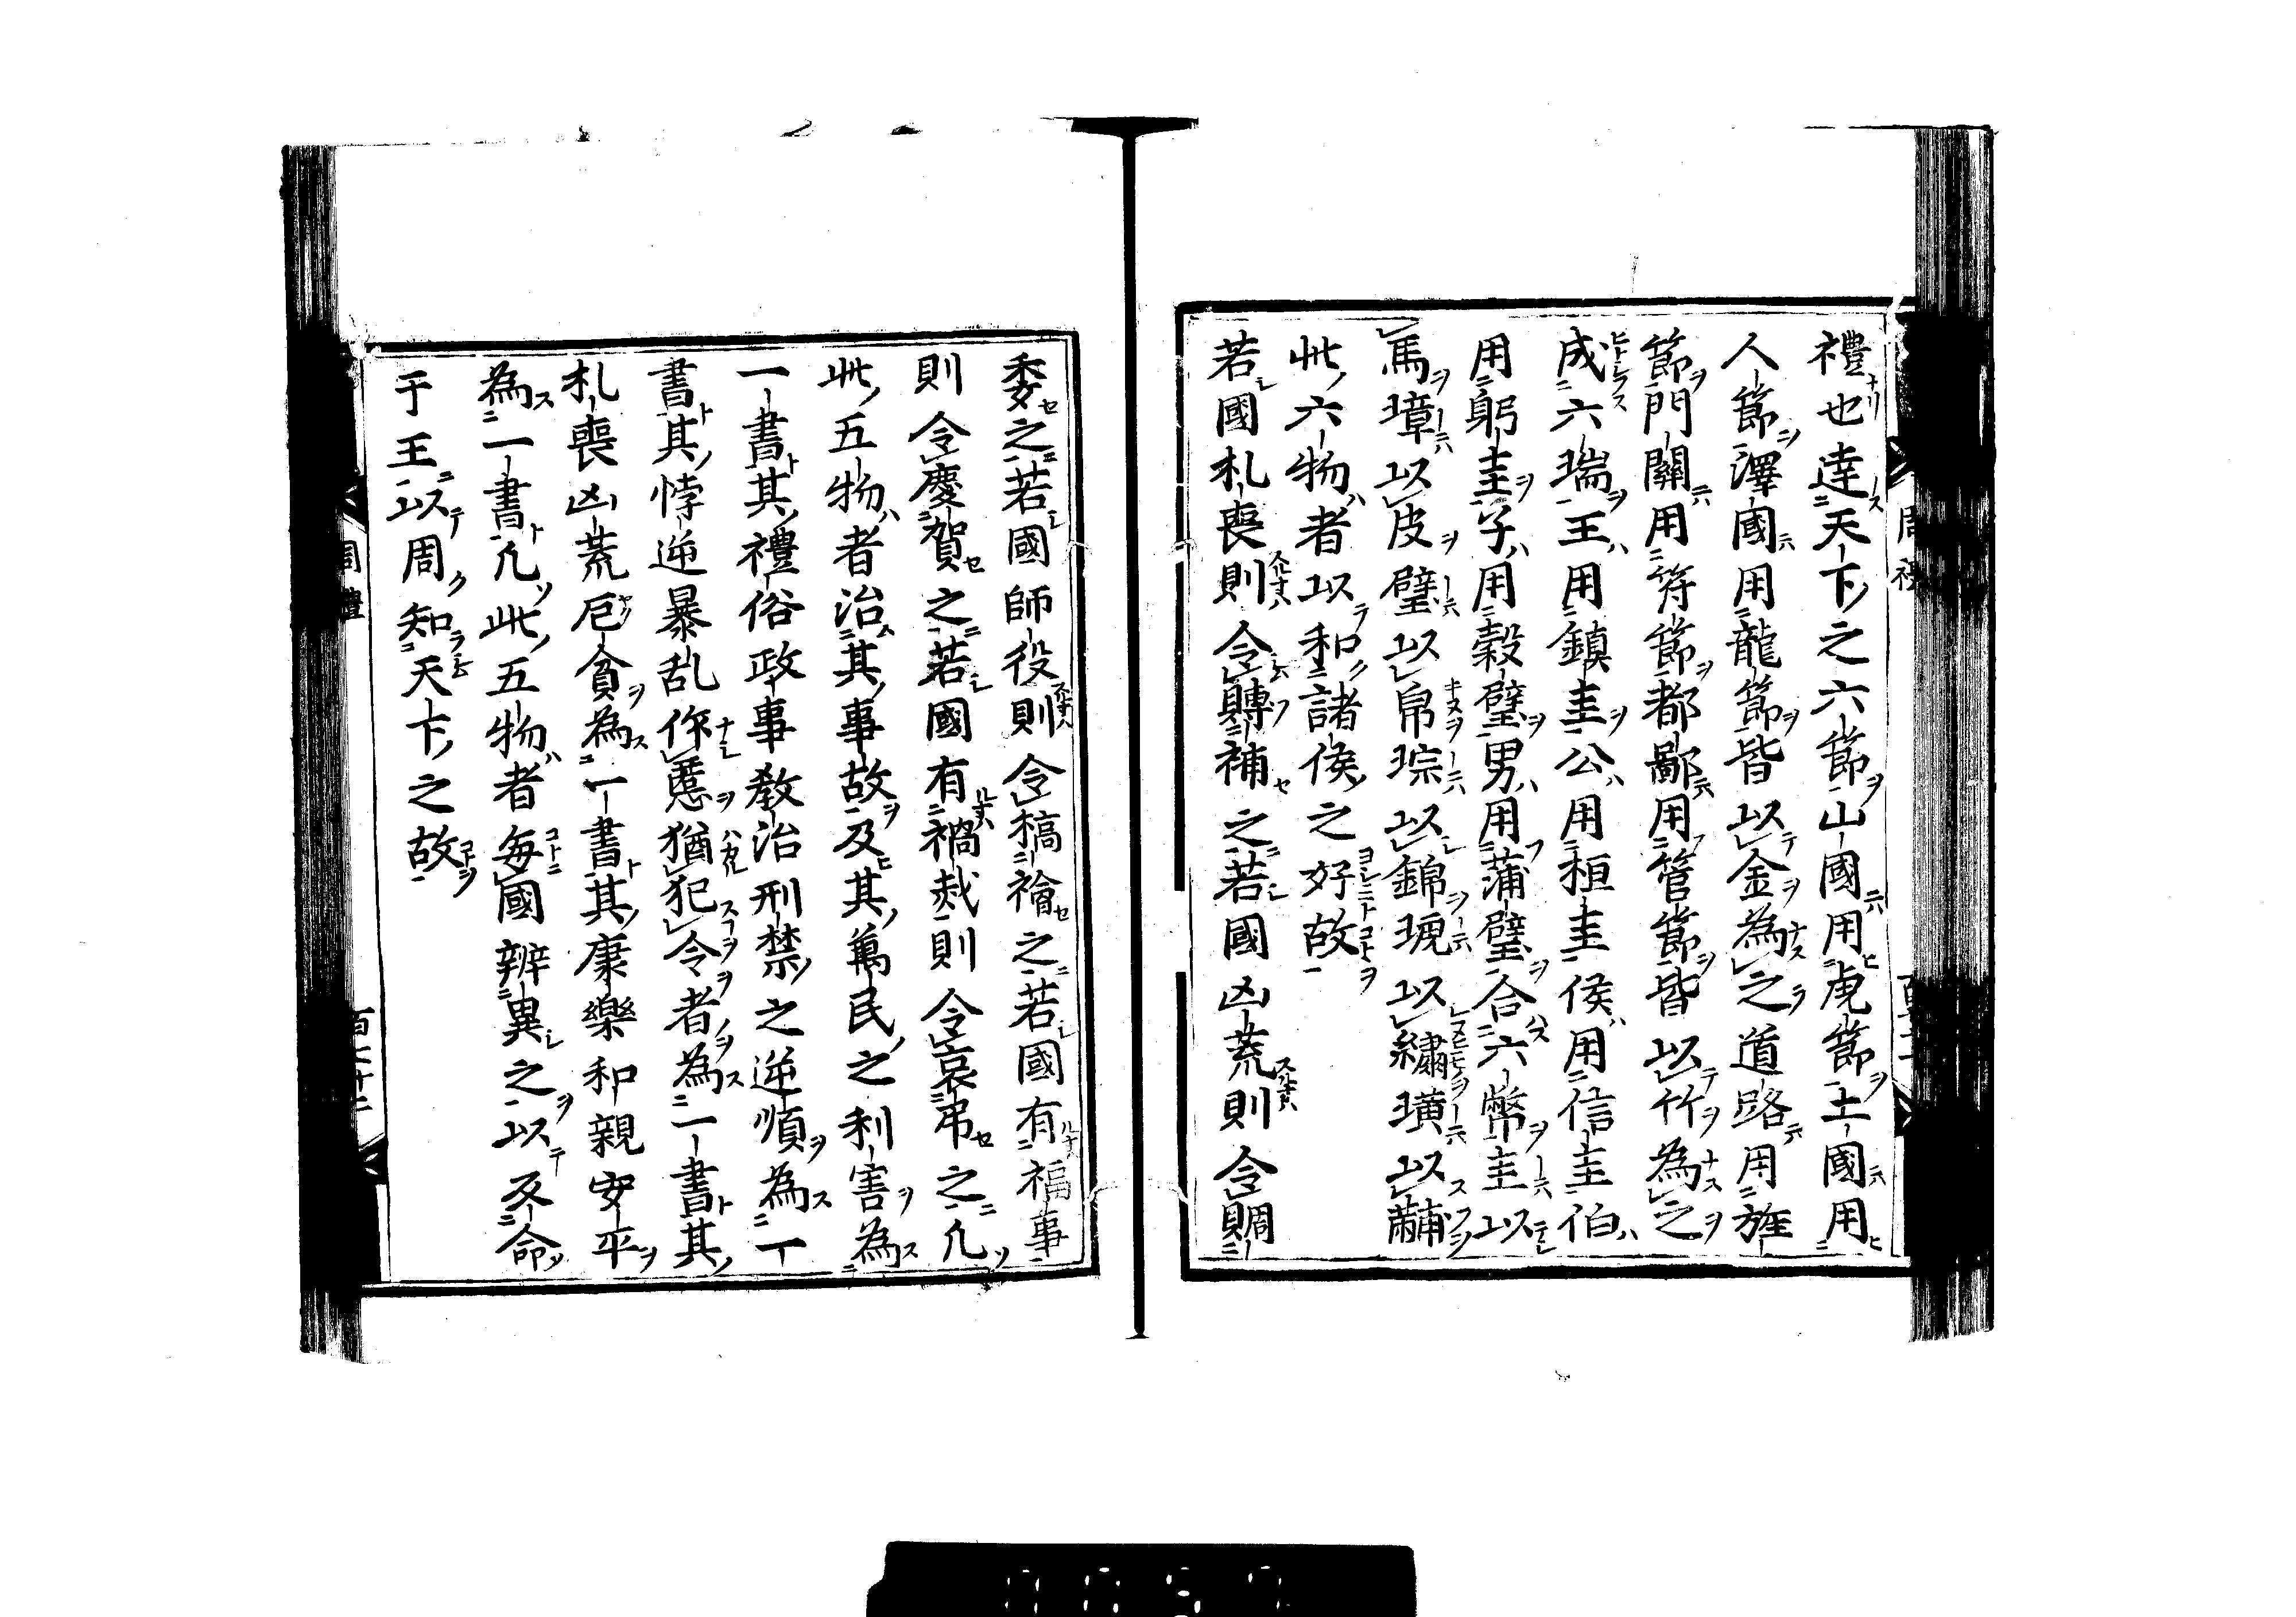 禮也達天下之六節山國用虎節土國用
人節澤國用龍節皆以金為之道路用旌
節門關用符節都鄙用管節皆以竹為之
成六瑞王用鎮圭公用桓圭侯用信圭伯
用躬圭子用穀璧男用蒲璧合六幣圭以
馬璋以皮璧以帛琮以錦琥以繡璜以黼
此六物者以和諸侯之好故
若國札喪則令賻補之若國凶荒則令賙
委之若國師役則令槁禬之若國有福事
則令慶賀之若國有禍烖則令哀弔之凡
此五物者治其事故及其萬民之利害為
一書其禮俗政事教治刑禁之逆順為一
書其悖逆暴乱作慝猶犯令者為一書其
札喪凶荒厄貧為一書其康樂和親安平
為一書凡此五物者每國辨異之以反命
于王以周知天下之故
周禮